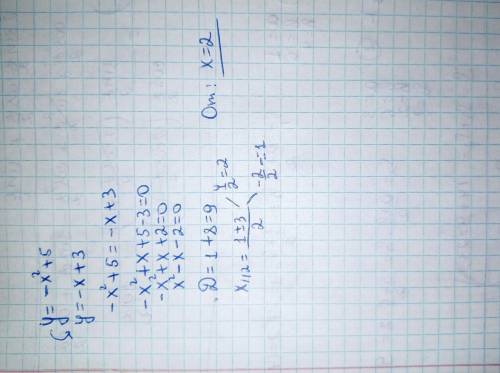 { y = -x² + 5
y = -x + 3
-x² + 5 = -x + 3
-x² + x + 5 - 3 = 0
-x² + x + 2 = 0
x² - x - 2 = 0
D = 1 + 8 = 9
x₁/₂ = (1 ± 3)/2 / 4/2 = 2 \ -2/2 = -1
От: x = 2